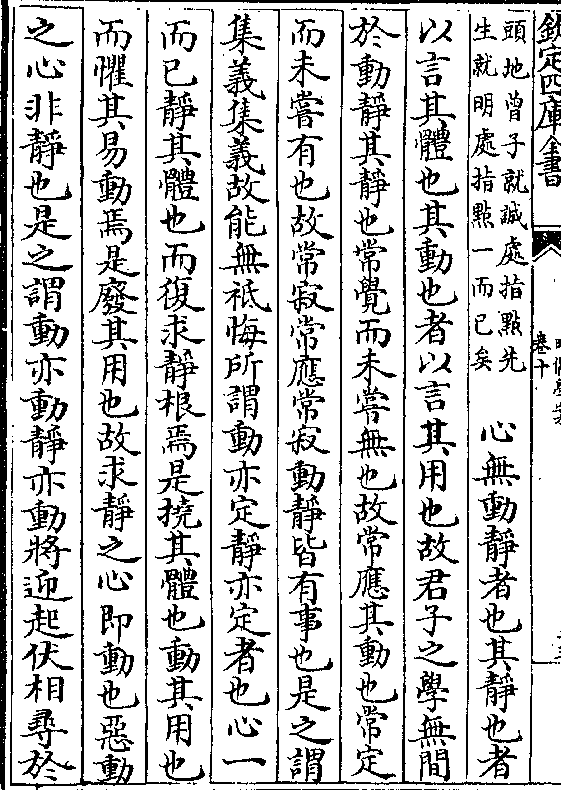 欽定四庫全書
卷十
頭地曾子就誠處指點先
生就明處指點一而已矣
心無動靜者也其靜也者
以言其體也其動也者以言其用也故君子之學無間
於動靜其靜也常覺而未嘗無也故常應其動也常定
而未嘗有也故常寂常應常寂動靜皆有事也是之謂
集義集義故能無祇悔所謂動亦定靜亦定者也心一
而已靜其體也而復求靜根焉是撓其體也動其用也
而懼其易動焉是廢其用也故求靜之心即動也惡動
之心非靜也是之謂動亦動靜亦動將迎起伏相尋於